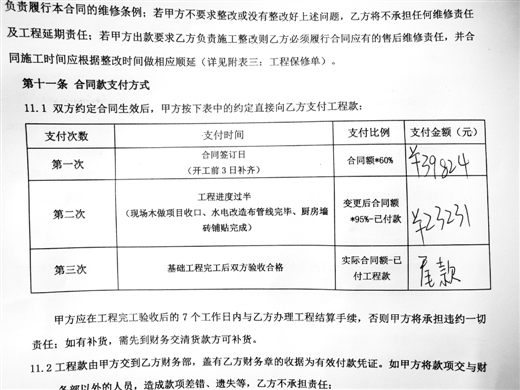 负责履行本合同的维修条例；若甲方不要求整改或没有整改好上述问题，乙方将不承担任何维修责任
及工程延期责任；若甲方出款要求乙方负责施工整改则乙方必须履行合同应有的售后维修责任，并合
同施工时间应根据整改时间做相应顺延（详见附表三：工程保修单）。
第十一条 合同款支付方式
11.1 双方约定合同生效后，甲方按下表中的约定直接向乙方支付工程款：
支付次数 支付时间 支付比例 支付金额（元）
第一次 合同签订日 （开工前 3 日补齐） 合同额*60% ¥39824
第二次 工程进度过半 （现场木做项目收口、水电改造布管线完毕、厨房墙 砖铺贴完成） 变更后合同额 *95%-已付款 ¥23231
第三次 基础工程完工后双方验收合格 实际合同额-已 付工程款 尾款
甲方应在工程完工验收后的 7 个工作日内与乙方办理工程结算手续，否则甲方将承担违约一切
责任；如有补货，需先到财务交清货款方可补货。
11.2 工程款由甲方交到乙方财务部，盖有乙方财务章的收据为有效付款凭证。如甲方将款项交与财
务部以外的人员，造成款项差错、遗失等，乙方不承担责任；